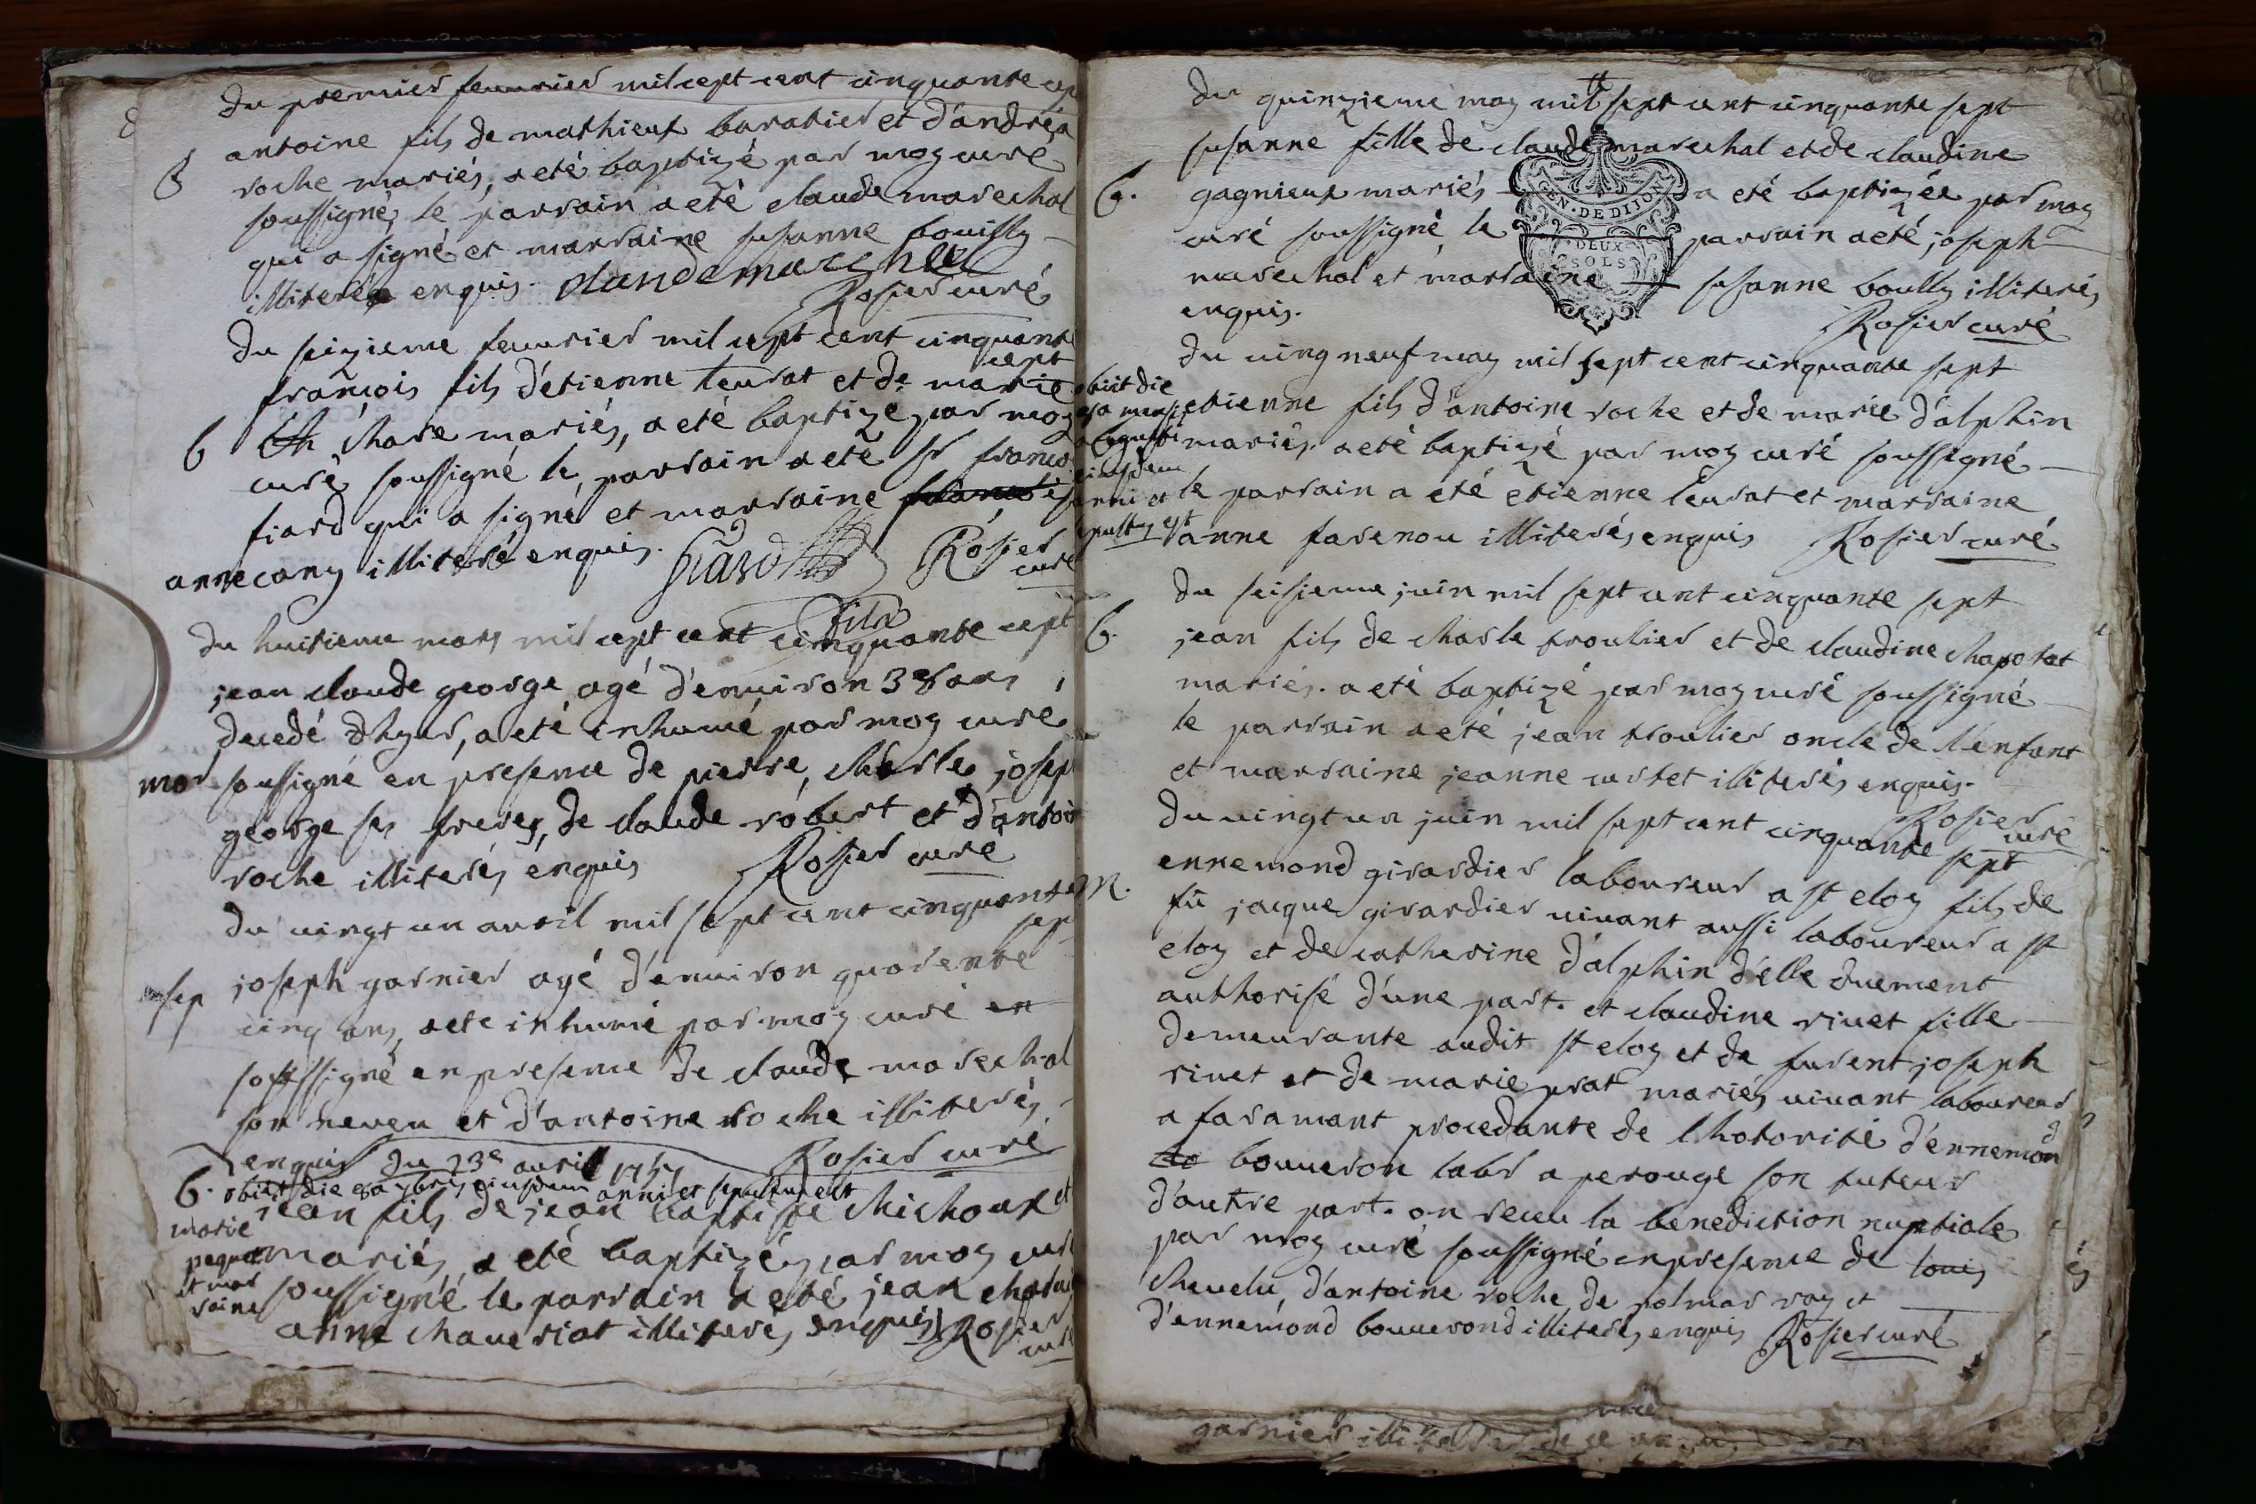 du premier feuvrier mil cept cent cinquante cep
antoine fils de mathieux baratier et d'andréa
B
roche mariés, a eté baptizé par moy curé
soussigné, le parrain a eté claude marechal
qui a signé et marraine susanne bouilly
illiterée enquis. claude marechal
Rosier curé
du seizieme feuvrier mil cept cent cinquante
cept
françois fils d'étienne leurat et de marie
b
chare mariés, a eté baptizé par moy
curé soussigné le parrain a eté sr franço
fiard qui a signé et marraine
anne cany illiteré enquis. fiard Rosier
curé
du huitieme mars mil cept cent cinquante cept
jean claude george agé d'enuiron 38 ans,
decedé d'hyer, a eté inhumé par moy curé
mor
soussigné en presence de pierre, charle, josep
george ses freres, de claude robert et d'antoin
roche illiterés enquis Rosier curé
du vingt un avril mil sept cent cinquante
sep
sep
joseph garnier agé d'enuiron quarente
cinq ans, a eté inhumé par moy curé en
soussigné en presence de claude marechal
son neveu et d'antoine roche illiterés
enquis Rosier curé
du 23e avril 1757
B. obiit die 8a 7bris eiusdem anni et sepultus est
jean fils de jean baptiste chichoux et
marie
paquet
mariés a eté baptizé par moy curé
et mar
raine
soussigné le parrain a eté jean
anne chaueriat illiterés enquis Rosier
curé
du quinzieme may mil sept cent cinquante sept
susanne fille de claude marechal et de claudine
B.
gagnieux mariés a eté baptizée par moy
GEN. DE DIJON
DEUX
SOLS
curé soussigné le parrain a eté joseph
marechal et marraine susanne bouilly illiterés
enquis.
Rosier curé
du ving neuf may mil sept cent cinquante sept
obiit die
etienne fils d'antoine roche et de marie d'alphin
augusti
mariés. a eté baptizé par moy curé soussigné
eiusdem
anni et
le parrain a été etienne leurat et marraine
sepultus est
anne farenou illiterés enquis Rosier curé
du seisieme juin mil sept cent cinquante sept
B.
jean fils de charle troulier et de claudine chapotat
mariés. a eté baptizé par moy curé soussigné
le parrain a eté jean troulier oncle de l'enfant
et marraine jeanne curtet illiterés enquis.
Rosier
curé
du vingt un juin mil sept cent cinquante sept
M.
ennemond girardier laboureur a st eloy fils de
fû jacque girardier vivant aussi laboureur a st
eloy et de catherine d'alphin d'elle duement
authorisé d'une part. et claudine rivet fille
demeurante audit st eloy et de furent joseph
rivet et de marie prat mariés vivant laboureur
a faramant procedante de l'hotorité d'ennemond
bouueron labr a perouge son tuteur
d'autre part. on receu la benediction nuptiale
par moy curé soussigné en presence de louis
chevelu, d'antoine roche, de polmar roy et
d'ennemond bouuerond illiterés enquis Rosier curé
garnier